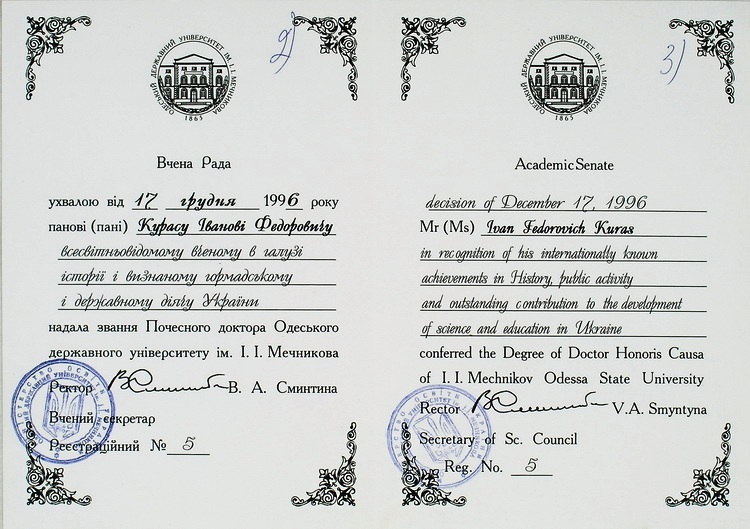 2)
ОДЕСЬКИЙ ДЕРЖАВНИЙ УНІВЕРСИТЕТ ІМ. І. І. МЕЧНИКОВА
1865
Вчена Рада
ухвалою від 17 грудня 1996 року
панові (пані) Курасу Іванові Федоровичу
всесвітньовідомому вченому в галузі
історії і визнаному гормадському
і державному діячу України
надала звання Почесного доктора Одеського
державного університету ім. І. І. Мечникова
Ректор В. А. Сминтина
Вчений секретар
Реєстраційний № 5
3)
ОДЕСЬКИЙ ДЕРЖАВНИЙ УНІВЕРСИТЕТ ІМ. І. І. МЕЧНИКОВА
1865
Academic Senate
decision of December 17, 1996
Mr (Ms) Ivan Fedorovich Kuras
in recognition of his internationally known
achievements in History, public activity
and outstanding contribution to the development
of science and education in Ukraine
conferred the Degree of Doctor Honoris Causa
of I. I. Mechnikov Odessa State University
Rector V.A. Smyntyna
Secretary of Sc. Council
Reg. No. 5